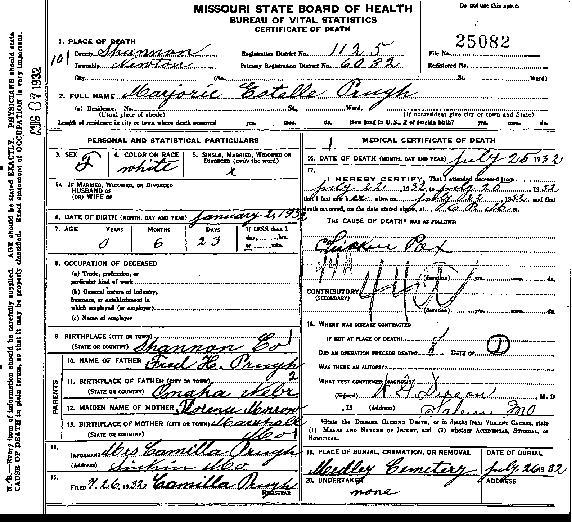 MISSOURI STATE BOARD OF HEALTH
BUREAU OF VITAL STATISTICS
CERTIFICATE OF DEATH
Do not use this space.
25082
1. PLACE OF DEATH
County Shannon Registration District No. 1125 File No.
Township Newton Primary Registration District No. 6032 Registered No.
City (No. St. Ward)
2. FULL NAME Marjorie Estelle Pugh
(a) Residence. No. St. Ward.
(Usual place of abode) (If nonresident give city or town and State)
Length of residence in city or town where death occurred yrs. mos. ds. How long in U. S., if of foreign birth? yrs. mos. ds.
PERSONAL AND STATISTICAL PARTICULARS
3. SEX F 4. COLOR OR RACE white 5. SINGLE, MARRIED, WIDOWED OR DIVORCED (write the word) x
5A. IF MARRIED, WIDOWED, OR DIVORCED
HUSBAND OF
(OR) WIFE OF
6. DATE OF BIRTH (MONTH, DAY AND YEAR) January 1932
7. AGE YEARS 0 MONTHS 6 DAYS 23 If LESS than 1
8. OCCUPATION OF DECEASED
(a) Trade, profession, or
particular kind of work
(b) General nature of industry,
business, or establishment in
which employed (or employer)
(c) Name of employer
9. BIRTHPLACE (CITY OR TOWN) Shannon Co
(STATE OR COUNTRY)
PARENTS
10. NAME OF FATHER Fred H. Pugh
11. BIRTHPLACE OF FATHER (CITY OR TOWN)
(STATE OR COUNTRY) Omaha Nebr
12. MAIDEN NAME OF MOTHER Florence
13. BIRTHPLACE OF MOTHER (CITY OR TOWN)
(STATE OR COUNTRY) Mo
14. INFORMANT Mrs Camilla Pugh
(Address) Mo.
15. FILED 7.26, 1932 Camilla Pugh
REGISTRAR
MEDICAL CERTIFICATE OF DEATH
16. DATE OF DEATH (MONTH, DAY AND YEAR) July 26 1932
17.
I HEREBY CERTIFY, That I attended deceased from
July 22 1932 to July 26 1932
that I last saw alive on 1932 and
death occurred, on the date stated above, at
THE CAUSE OF DEATH* WAS AS FOLLOWS:
Chicken Pox
44A
CONTRIBUTORY
(SECONDARY)
18. WHERE WAS DISEASE CONTRACTED
IF NOT AT PLACE OF DEATH?
DID AN OPERATION PRECEDE DEATH? DATE OF
WAS THERE AN AUTOPSY?
WHAT TEST CONFIRMED DIAGNOSIS?
(Signed) M. D.
, 19 (Address) Salem Mo
*State the DISEASE CAUSING DEATH, or in deaths from VIOLENT CAUSES, state
(1) MEANS AND NATURE OF INJURY, and (2) whether ACCIDENTAL, SUICIDAL, or
HOMICIDAL.
19. PLACE OF BURIAL, CREMATION, OR REMOVAL DATE OF BURIAL
Medley Cemetery July 26 1932
20. UNDERTAKER ADDRESS
none
AUG 07 1932
N. B.—Every item of information should be carefully supplied. AGE should be stated EXACTLY. PHYSICIANS should state
CAUSE OF DEATH in plain terms, so that it may be properly classified. Exact statement of OCCUPATION is very important.